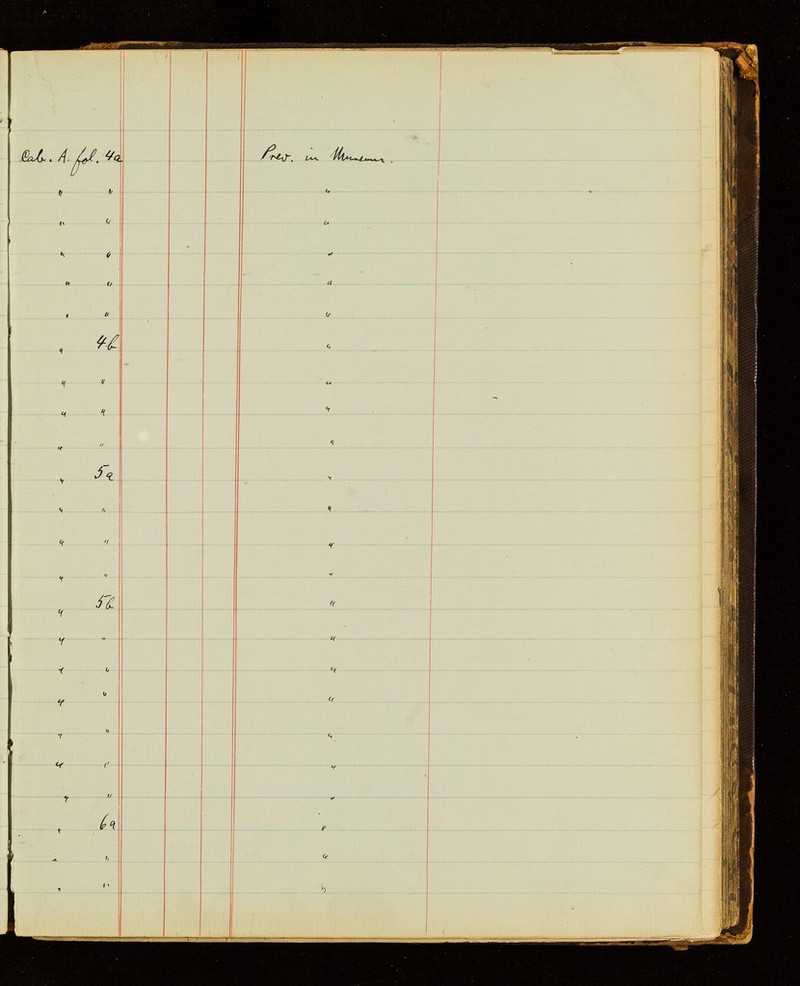 Cab. A. fol. 4a Prev. in Museum.
" " "
" " "
" " "
" " "
" " "
" 4b "
" " "
" " "
" " "
" 5a "
" " "
" " "
" " "
" 5b "
" " "
" " "
" " "
" " "
" " "
" " "
" 6a "
" " "
" " "